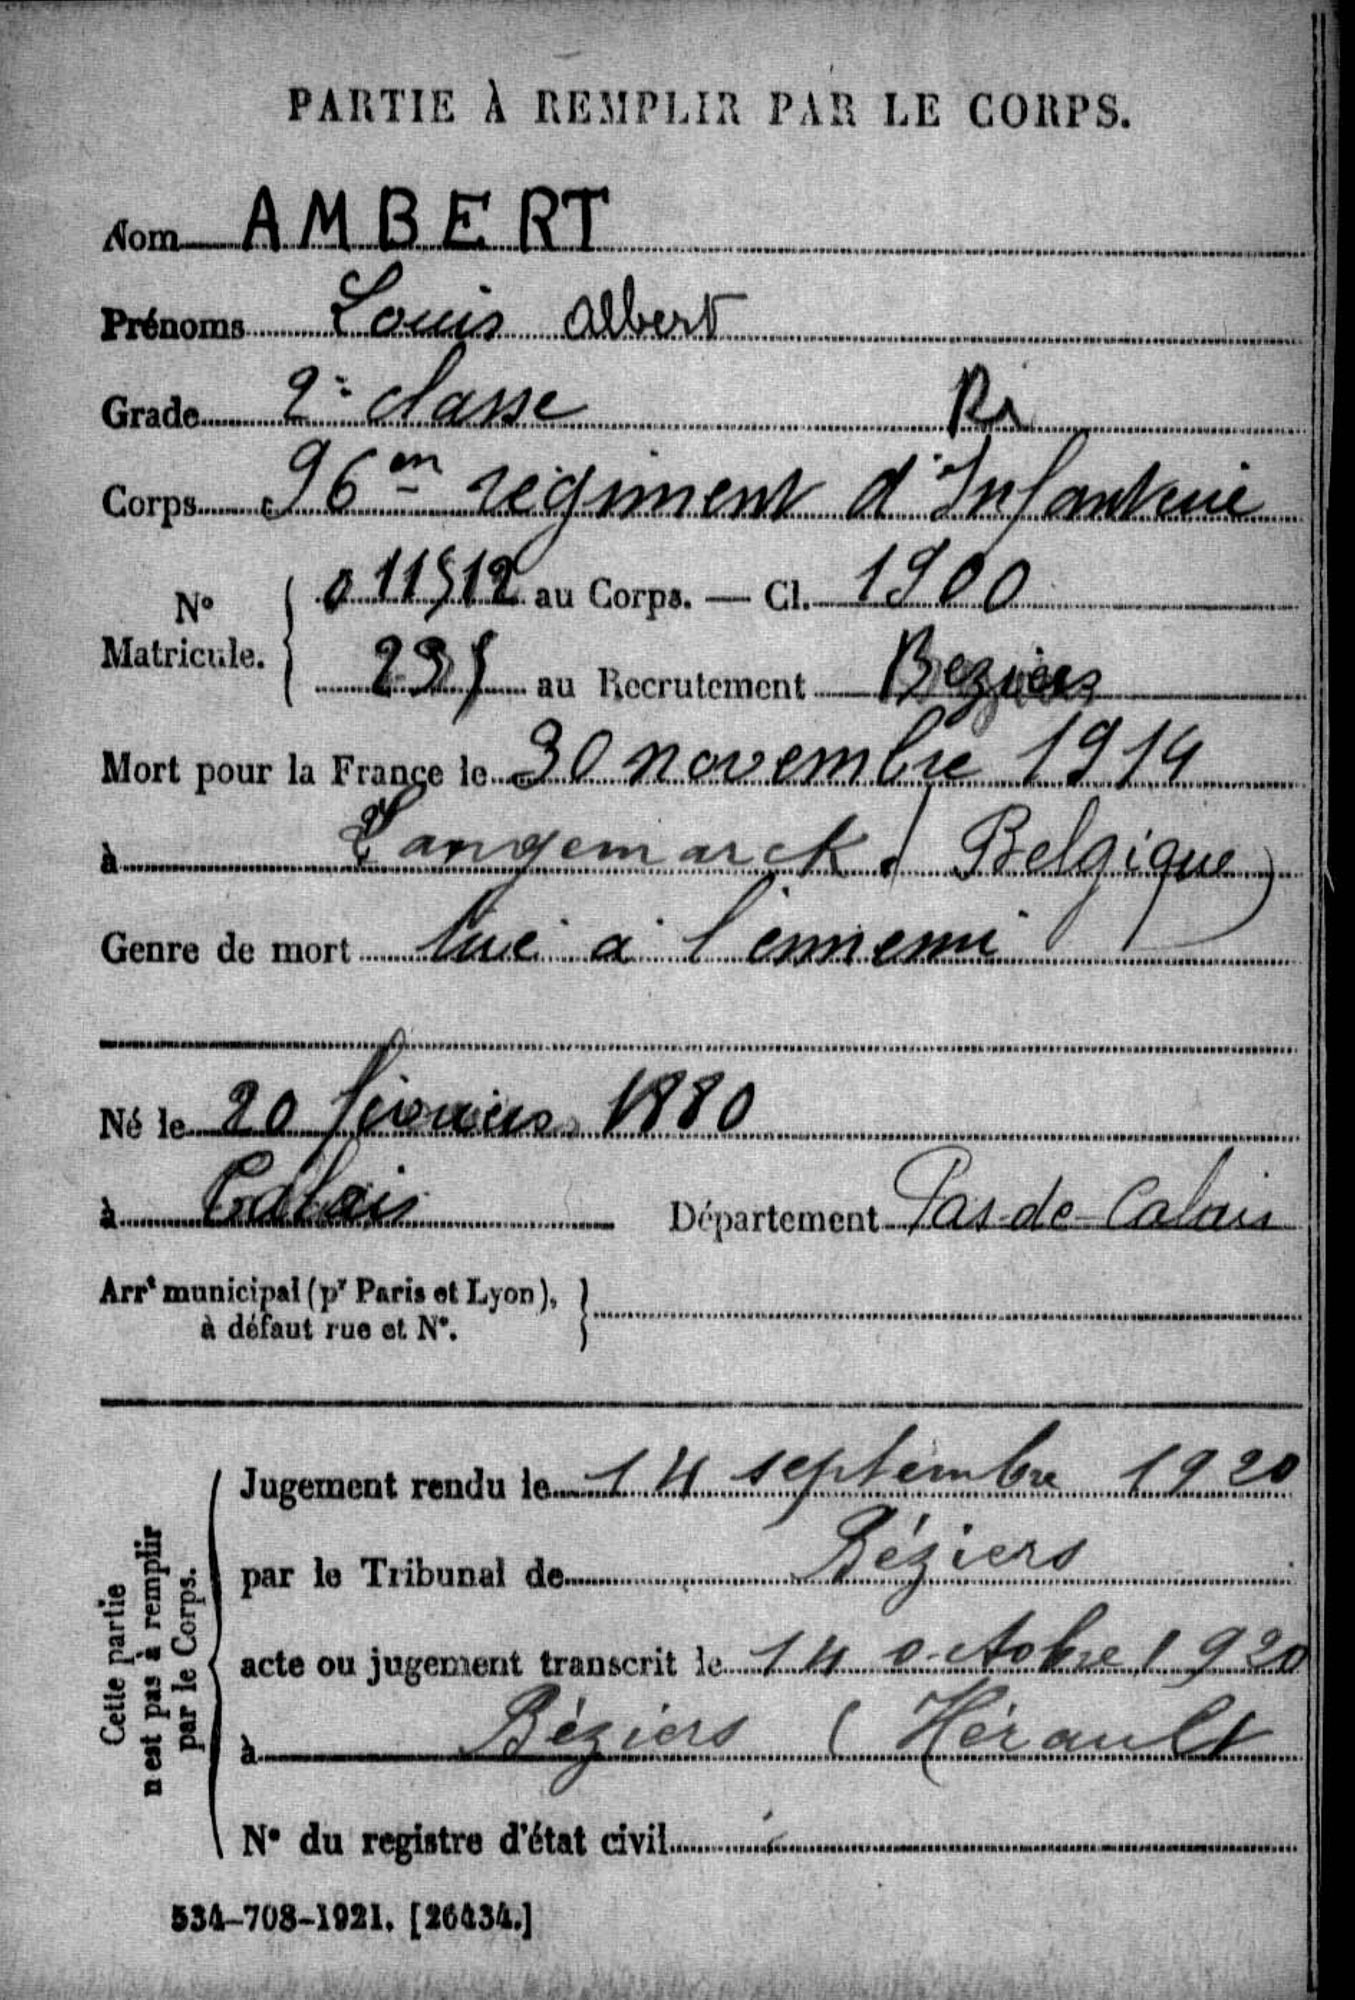 PARTIE À REMPLIR PAR LE CORPS.
Nom AMBERT
Prénoms Louis Albert
Grade 2e classe
Corps 96em régiment d'Infanterie
No Matricule. 011512 au Corps. — Cl. 1900
au Recrutement Beziers
Mort pour la France le 30 novembre 1914
à Langemarck (Belgique)
Genre de mort tué à l'ennemi
Né le 20 février 1880
à Calais Département Pas-de-Calais
Arrt municipal (pr Paris et Lyon), à défaut rue et No.
Cette partie n'est pas à remplir par le Corps.
Jugement rendu le 14 septembre 1920
par le Tribunal de Béziers
acte ou jugement transcrit le 14 octobre 1920
à Béziers (Hérault
No du registre d'état civil
534-708-1921. [26434.]